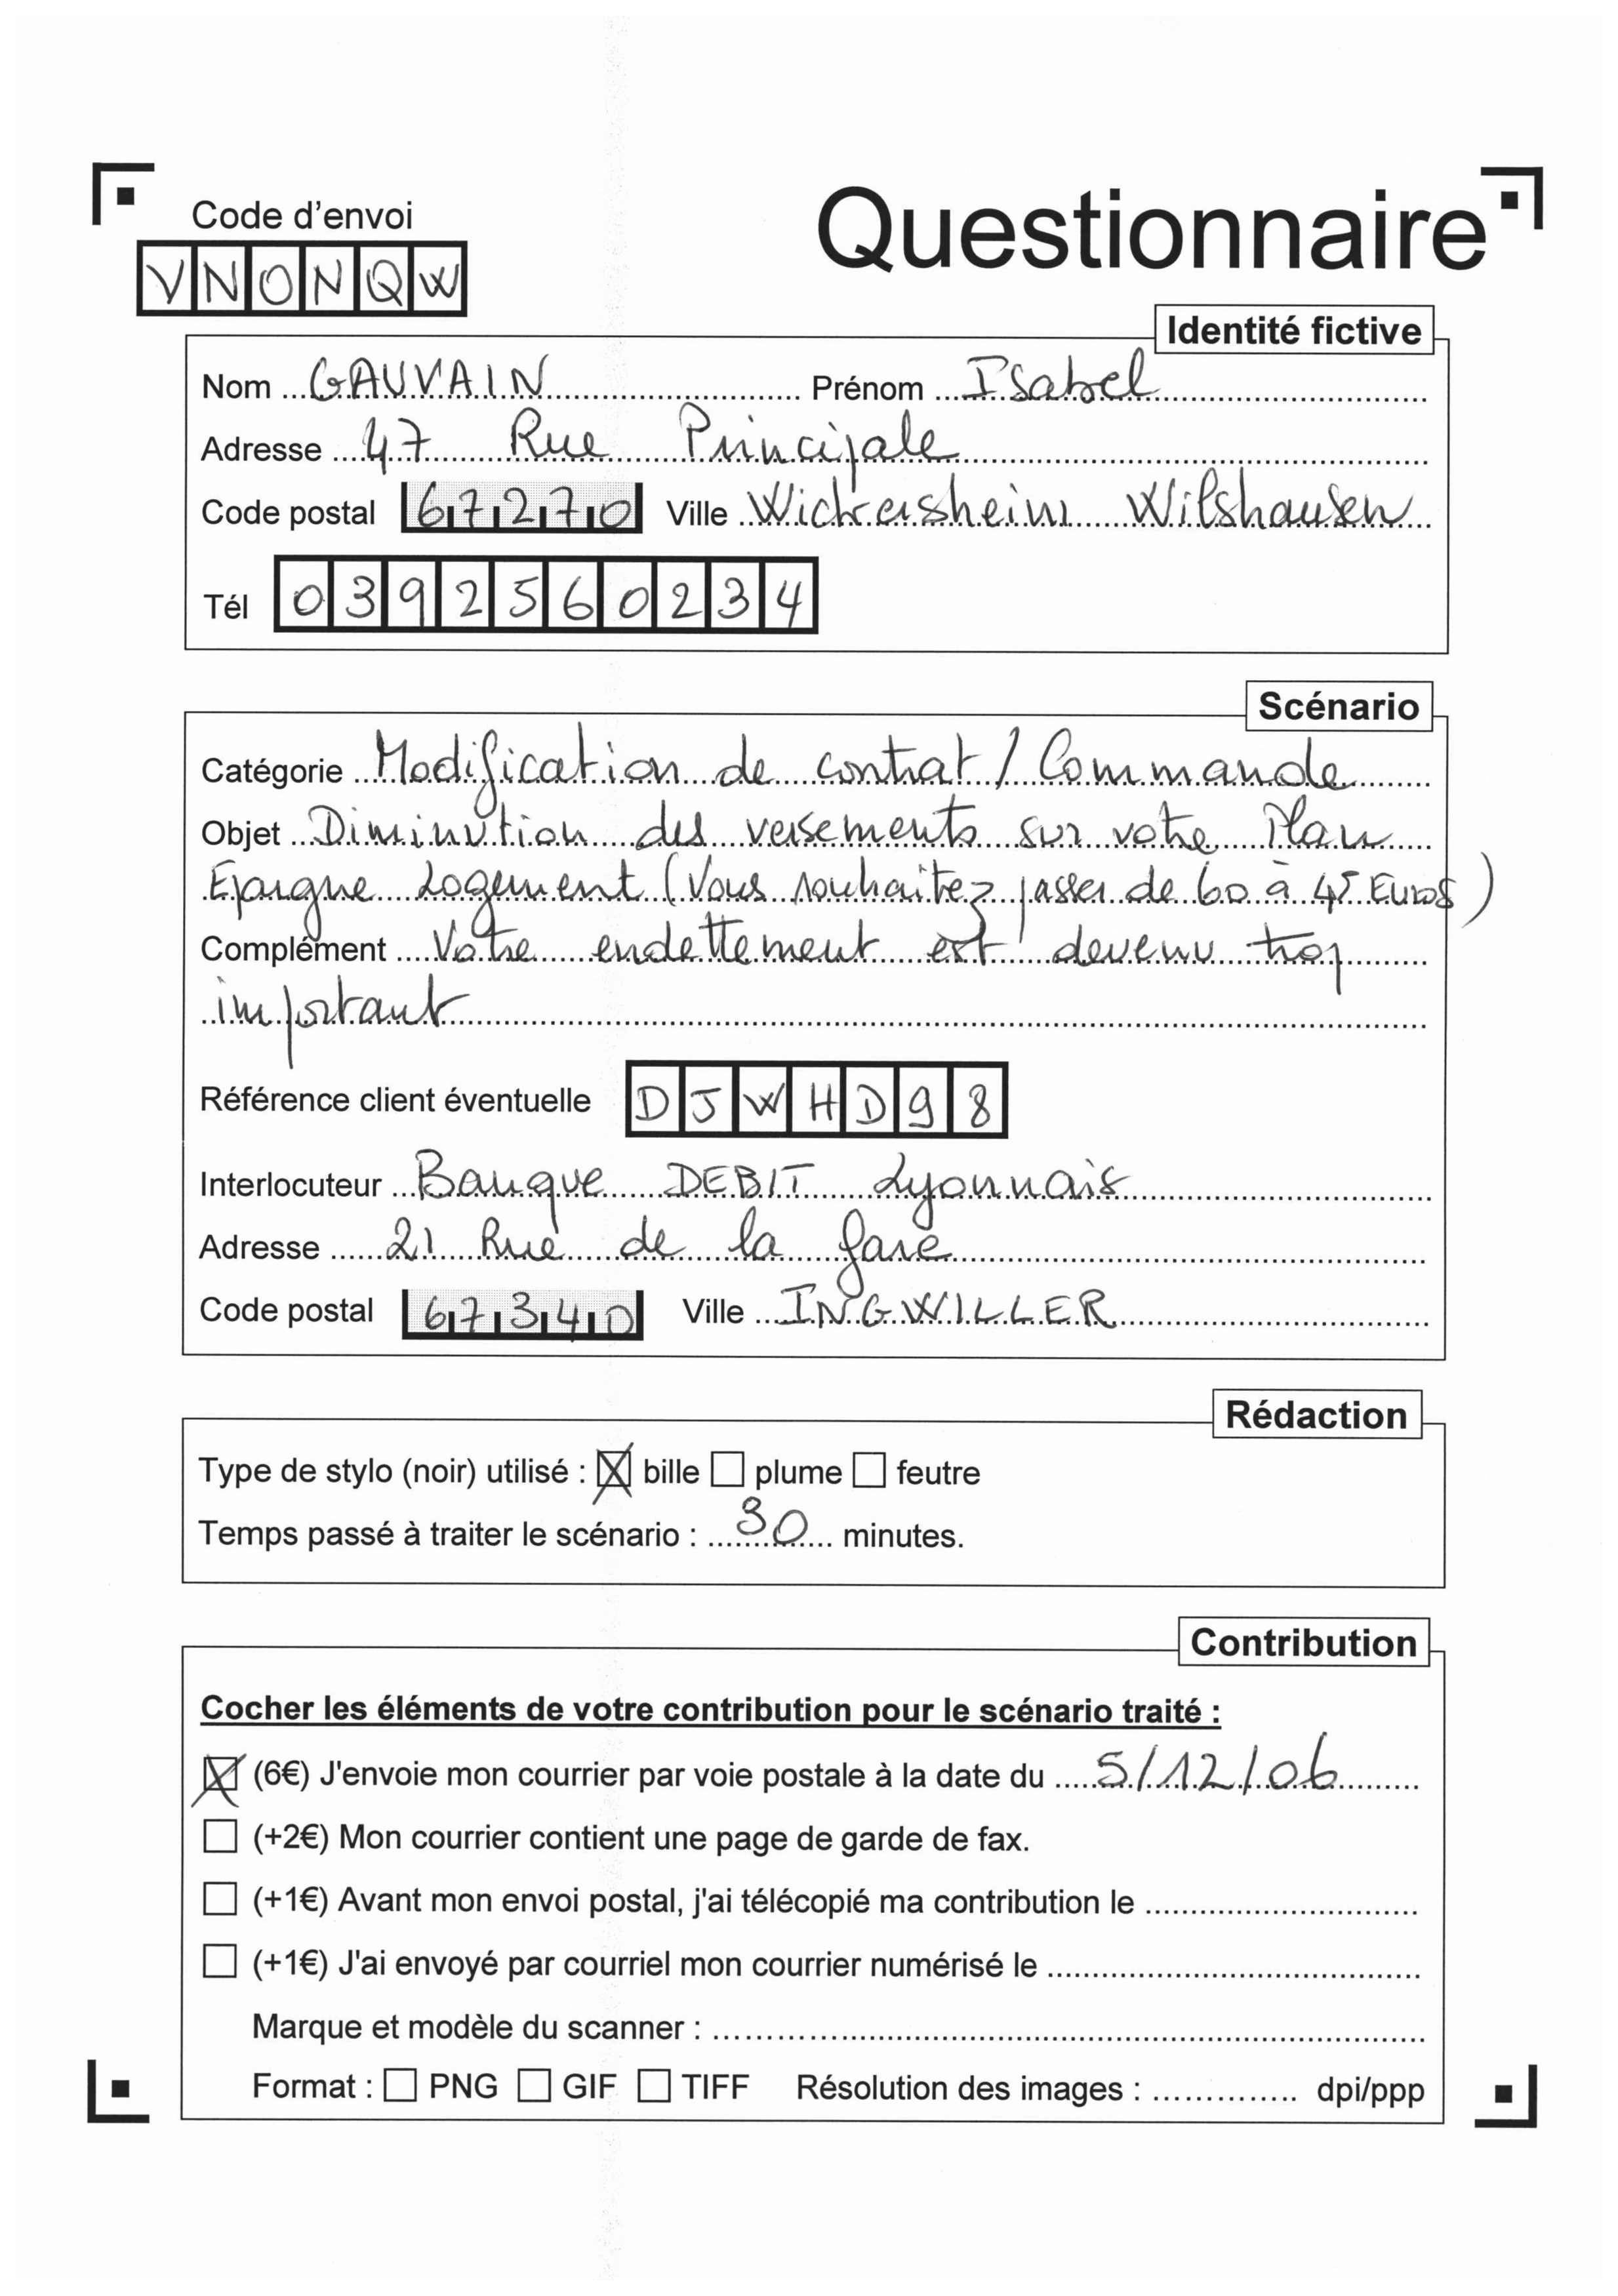 Code d'envoi
Questionnaire
VNONQW
Identité fictive
Nom GAUVAIN Prénom Isabel
Adresse 47 Rue Principale
Code postal 67270 Ville Wickersheim Wilshausen
Tél 0392560234
Scénario
Catégorie Modification de contrat / Commande
Objet Diminution des versements sur votre Plan
Epargne Logement (Vous souhaitez passer de 60 à 45 Euros)
Complément Votre endettement est devenu trop
important
Référence client éventuelle DJWHD98
Interlocuteur Banque DEBIT Lyonnais
Adresse 21 Rue de la gare
Code postal 67340 Ville INGWILLER
Rédaction
Type de stylo (noir) utilisé : ☒ bille ☐ plume ☐ feutre
Temps passé à traiter le scénario : 30 minutes.
Contribution
Cocher les éléments de votre contribution pour le scénario traité :
☒ (6€) J'envoie mon courrier par voie postale à la date du 5/12/06
☐ (+2€) Mon courrier contient une page de garde de fax.
☐ (+1€) Avant mon envoi postal, j'ai télécopié ma contribution le
☐ (+1€) J'ai envoyé par courriel mon courrier numérisé le
Marque et modèle du scanner :
Format : ☐ PNG ☐ GIF ☐ TIFF Résolution des images : dpi/ppp